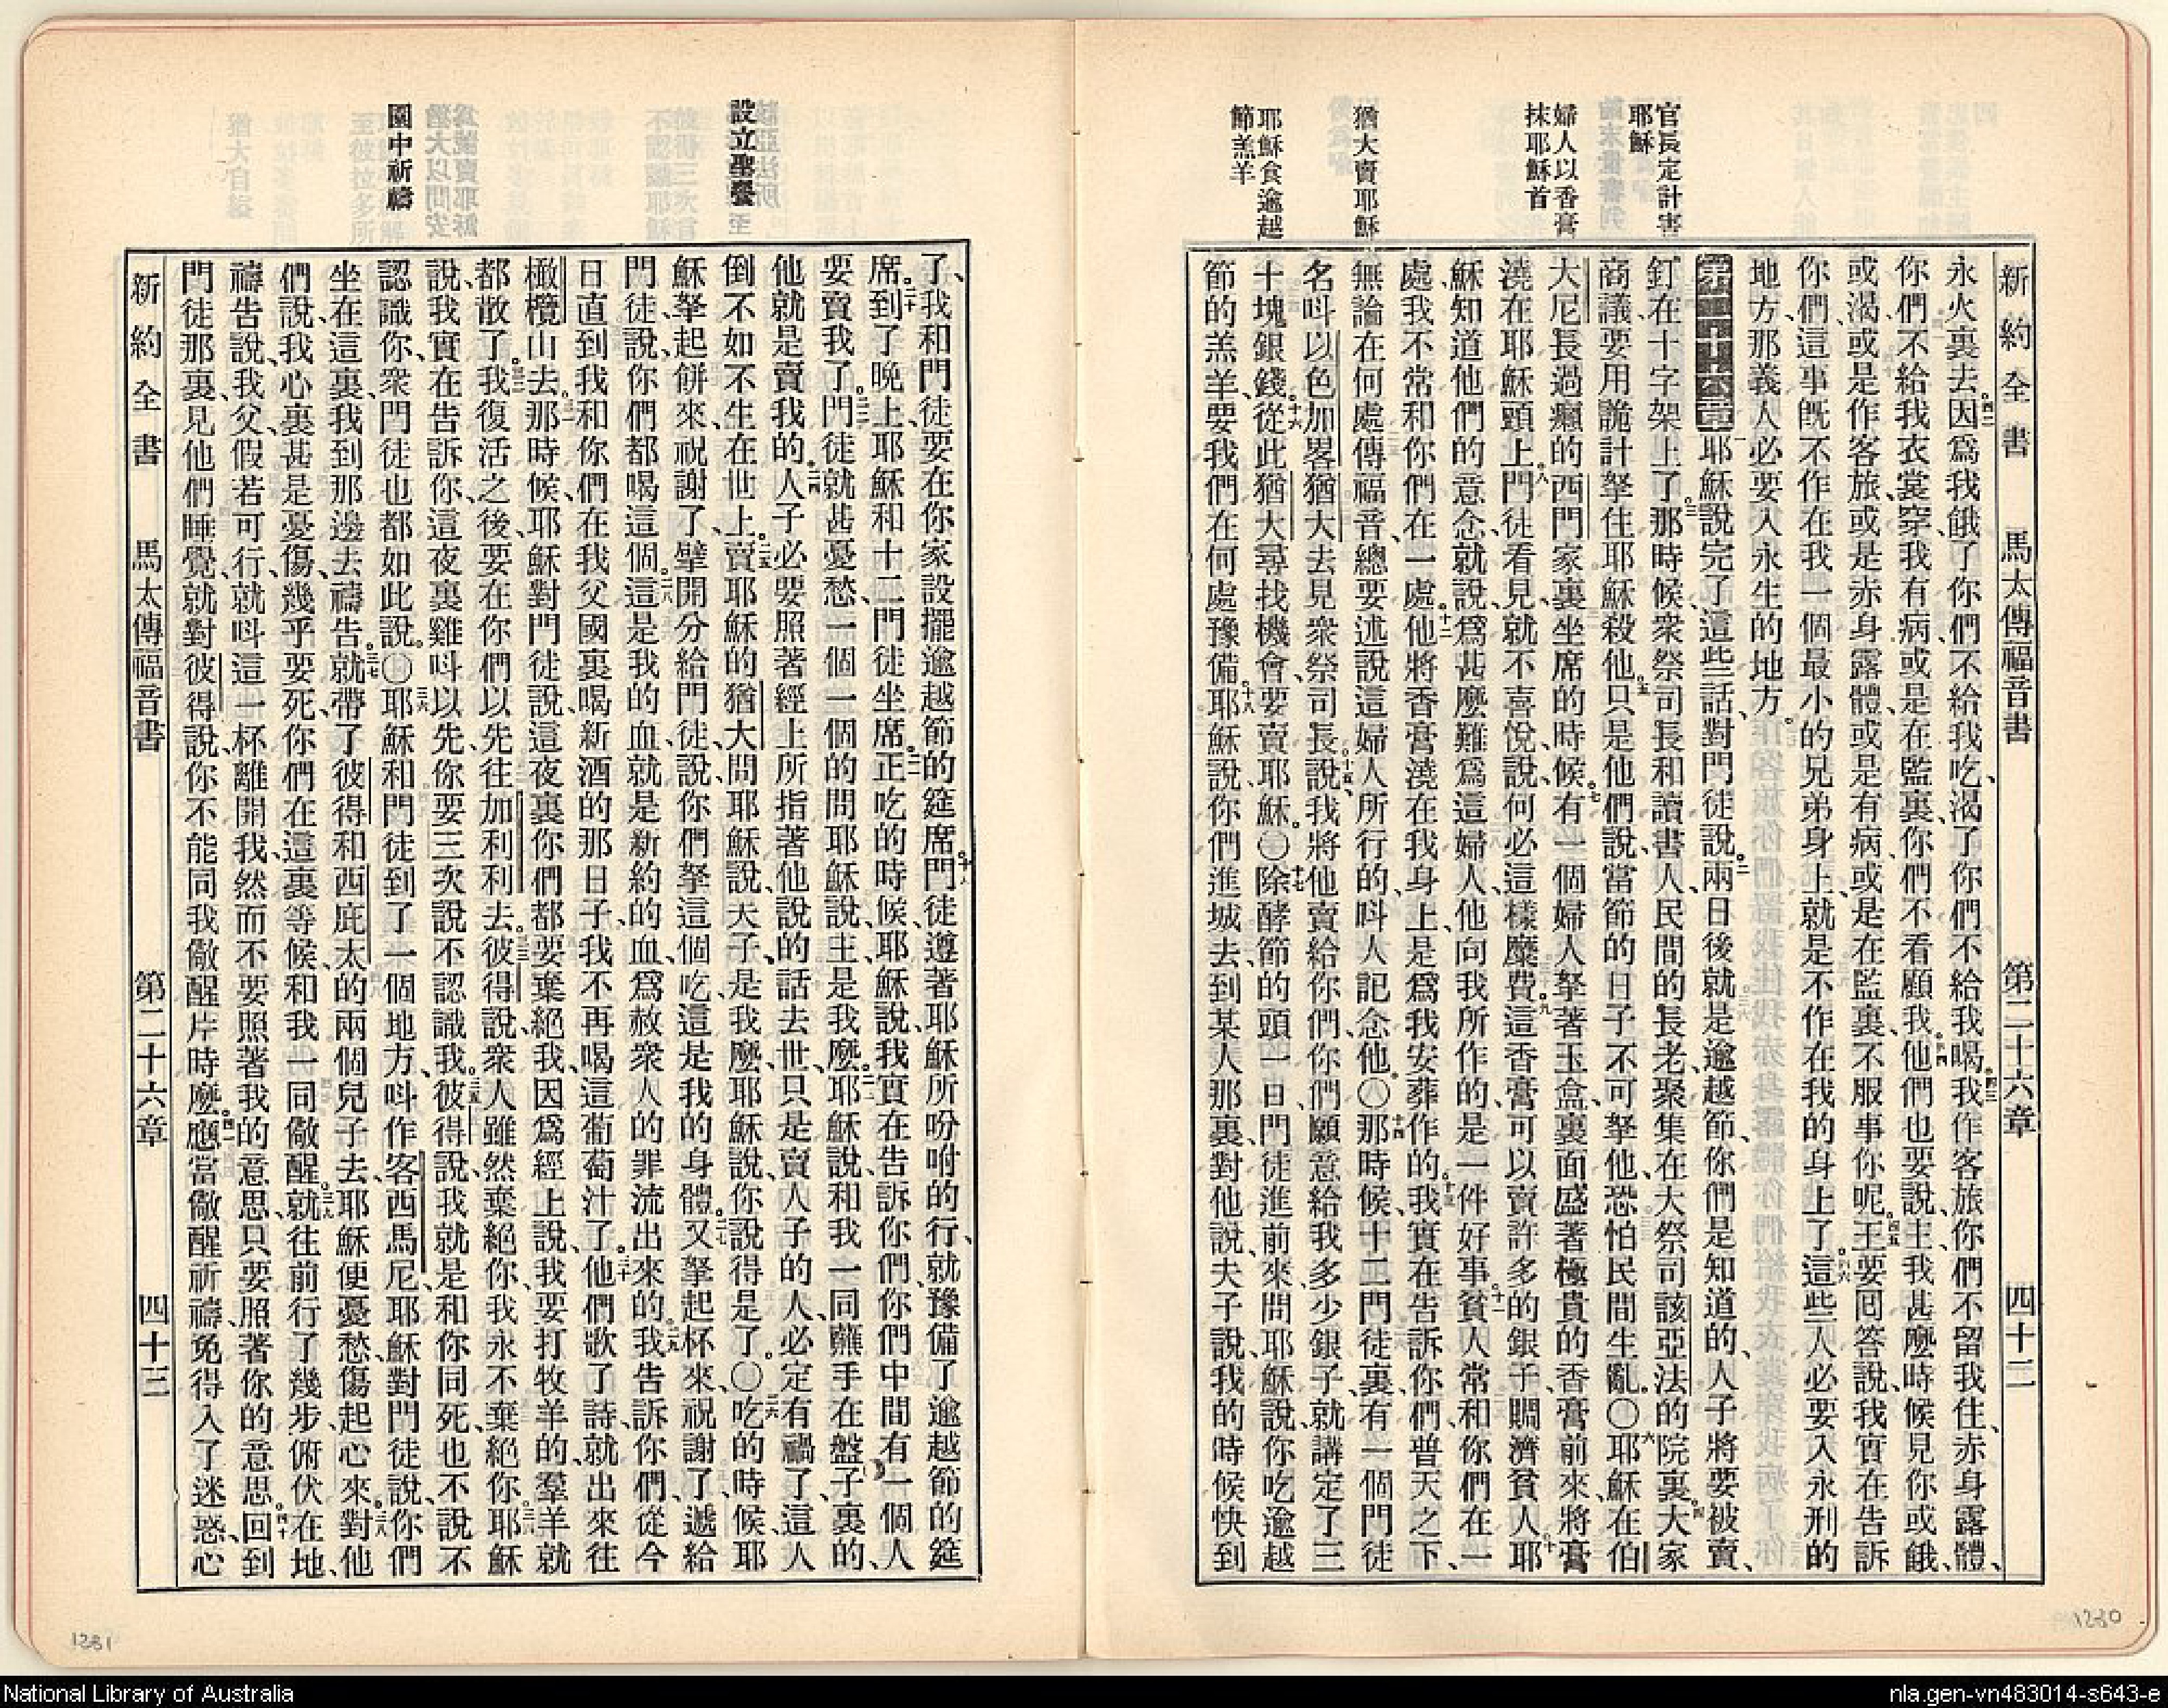 新約全書 馬太傳福音書 第二十六章 四十二
官長定計害
耶穌
婦人以香膏
抹耶穌首
猶大賣耶穌
耶穌食逾越
節羔羊
永火裏去。四二因爲我餓了你們不給我吃、渴了你們不給我喝。四三我作客旅、你們不留我住、赤身露體、
你們不給我衣裳穿、我有病或是在監裏、你們不看顧我。四四他們也要說、主、我甚麼時候見你或餓、
或渴、或是作客旅、或是赤身露體、或是有病、或是在監裏、不服事你呢。四五王要回答說、我實在告訴
你們、這事旣不作在我一個最小的兄弟身上、就是不作在我的身上了。四六這些人必要入永刑的
地方、那義人必要入永生的地方。
第二十六章一耶穌說完了這些話、對門徒說。二兩日後就是逾越節、你們是知道的、人子將要被賣、
釘在十字架上了。三那時候、衆祭司長和讀書人、民間的長老、聚集在大祭司該亞法的院裏。四大家
商議要用詭計拏住耶穌殺他。五只是他們說、當節的日子不可拏他、恐怕民間生亂。〇六耶穌在伯
大尼長過癩的西門家裏坐席的時候。七有一個婦人拏著玉盒、裏面盛著極貴的香膏前來、將膏
澆在耶穌頭上。八門徒看見、就不喜悅、說、何必這樣糜費。九這香膏可以賣許多的銀子賙濟貧人。十耶
穌知道他們的意念、就說、爲甚麼難爲這婦人、他向我所作的是一件好事。十一貧人常和你們在一
處、我不常和你們在一處。十二他將香膏澆在我身上、是爲我安葬作的。十三我實在告訴你們、普天之下、
無論在何處傳福音、總要述說這婦人所行的、呌人記念他。〇十四那時候、十二門徒裏有一個門徒
名呌以色加畧猶大、去見衆祭司長。十五說、我將他賣給你們、你們願意給我多少銀子、就講定了三
十塊銀錢。十六從此猶大尋找機會、要賣耶穌。〇十七除酵節的頭一日、門徒進前來問耶穌說、你吃逾越
節的羔羊、要我們在何處豫備。十八耶穌說、你們進城去、到某人那裏、對他說、夫子說、我的時候快到
設立聖餐
園中祈禱
了、我和門徒要在你家設擺逾越節的筵席。十九門徒遵著耶穌所吩咐的行、就豫備了逾越節的筵
席。二十到了晚上、耶穌和十二門徒坐席。二一正吃的時候、耶穌說、我實在告訴你們、你們中間有一個人
要賣我了。二二門徒就甚憂愁、一個一個的問耶穌說、主、是我麼。二三耶穌說、和我一同蘸手在盤子裏的、
他就是賣我的人。二四人子必要照著經上所指著他說的話去世、只是賣人子的人、必定有禍了、這人
倒不如不生在世上。二五賣耶穌的猶大問耶穌說、夫子、是我麼、耶穌說、你說得是了。〇二六吃的時候、耶
穌拏起餅來、祝謝了、擘開分給門徒、說、你們拏這個吃、這是我的身體。二七又拏起杯來、祝謝了、遞給
門徒、說、你們都喝這個。二八這是我的血、就是新約的血、爲赦衆人的罪流出來的。二九我告訴你們、從今
日直到我和你們在我父國裏喝新酒的那日子、我不再喝這葡萄汁了。三十他們歌了詩、就出來往
橄欖山去。三一那時候、耶穌對門徒說、這夜裏你們都要棄絕我、因爲經上說、我要打牧羊的、羣羊就
都散了。三二我復活之後、要在你們以先往加利利去。三三彼得說、衆人雖然棄絕你、我永不棄絕你。三四耶穌
說、我實在告訴你、這夜裏雞呌以先、你要三次說不認識我。三五彼得說、我就是和你同死、也不說不
認識你、衆門徒也都如此說。〇三六耶穌和門徒到了一個地方、呌作客西馬尼、耶穌對門徒說、你們
坐在這裏、我到那邊去禱告。三七就帶了彼得和西庇太的兩個兒子去、耶穌便憂愁傷起心來。三八對他
們說、我心裏甚是憂傷、幾乎要死、你們在這裏等候、和我一同儆醒。三九就往前行了幾步、俯伏在地、
禱告說、我父、假若可行、就呌這一杯離開我、然而不要照著我的意思、只要照著你的意思。四十回到
門徒那裏、見他們睡覺、就對彼得說、你不能同我儆醒片時麼。四一應當儆醒祈禱、免得入了迷惑、心
新約全書 馬太傳福音書 第二十六章 四十三
1281
1280
National Library of Australia
nla.gen-vn483014-s643-e